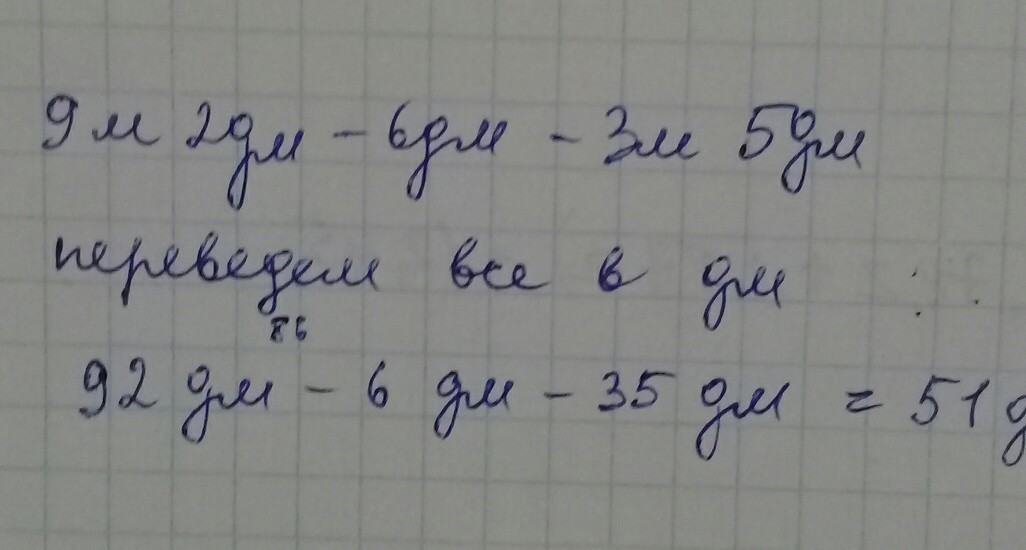 9м 2дм - 6дм - 3м 5дм
переведем все в дм
86
92 дм - 6 дм - 35 дм = 51 д